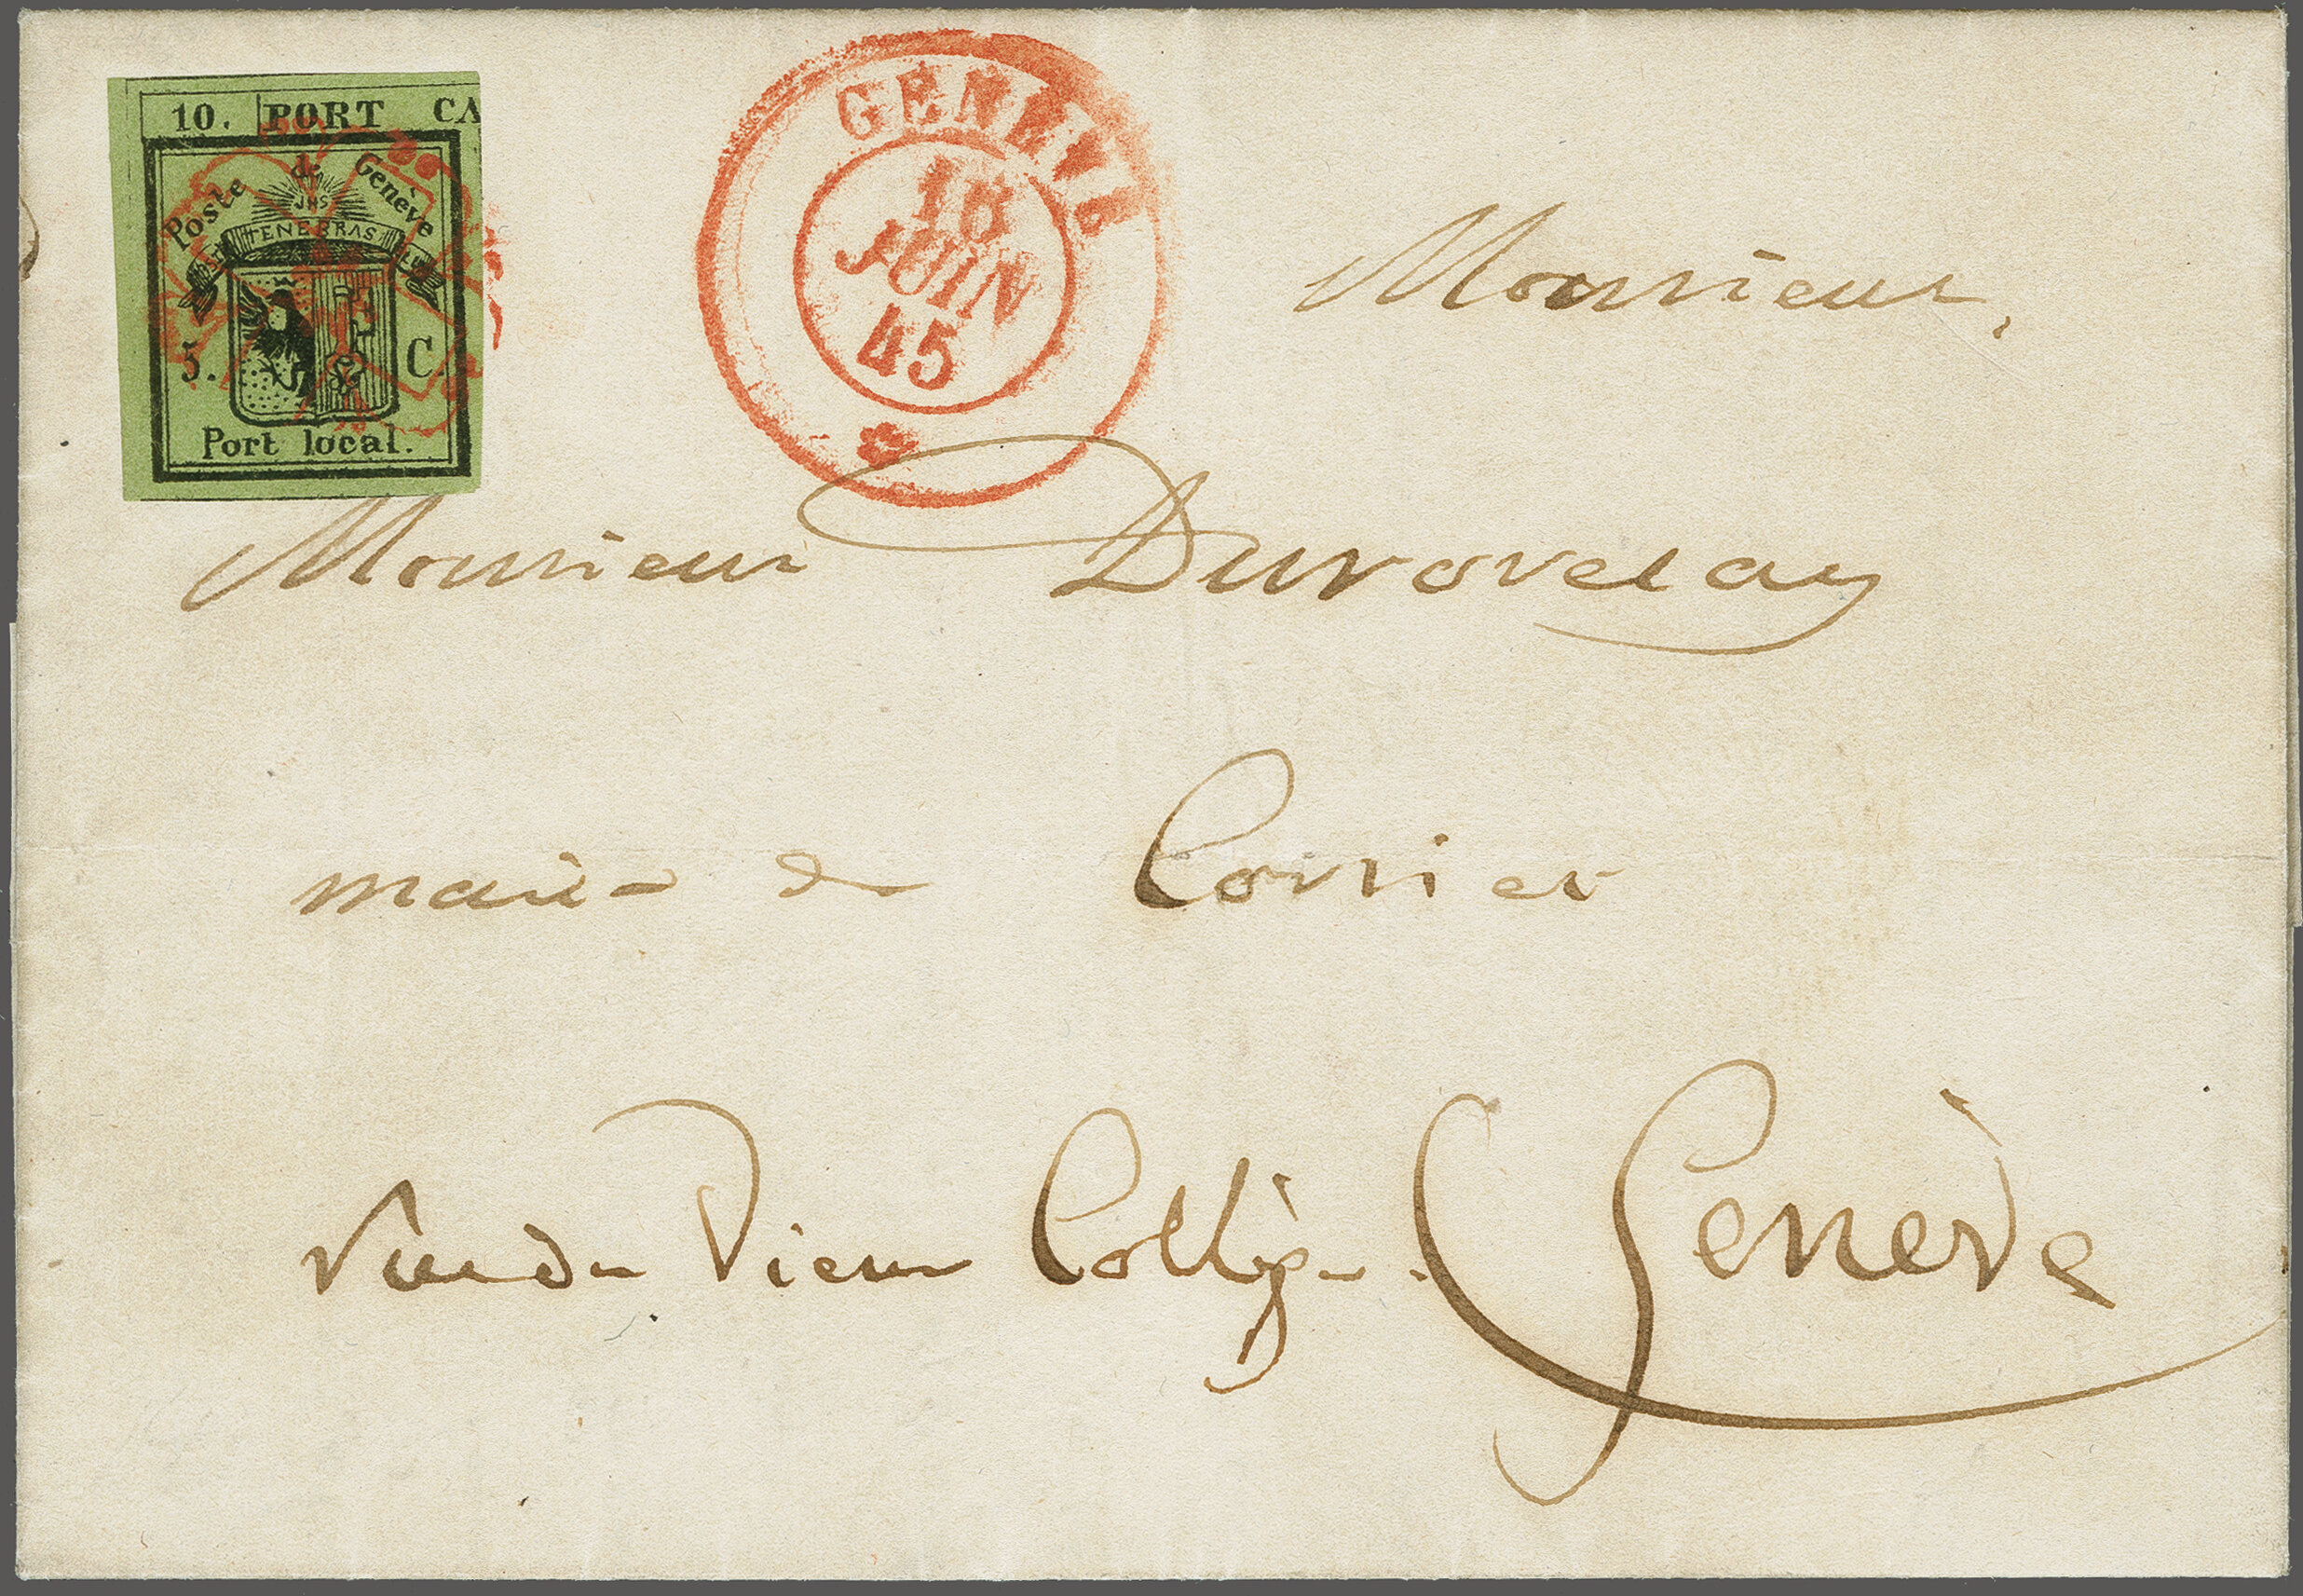 10. PORT CA
Poste de Genève
JHS
TENEBRAS
5. C.
Port local.
GENÈVE
16
JUIN
45
Monsieur,
Monsieur Durovelay
maire de Corsier
rue du Vieux Collège. Genève